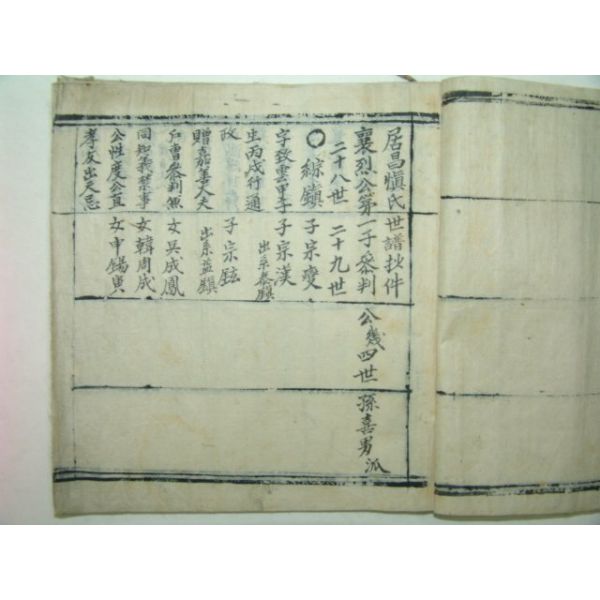 居昌愼氏世譜抄件
襄烈公第一子參判公幾四世孫喜男派
二十八世 二十九世
○ 綜鎭 子宗燮
字致雲甲子 子宗漢
生丙戌行通 出系泰鎭
政 子宗鉉
贈嘉善大夫 出系益鎭
戶曹參判兼 女吳成鳳
同知義禁事 女韓周成
公性度公直 女申錫寅
孝友出天忌